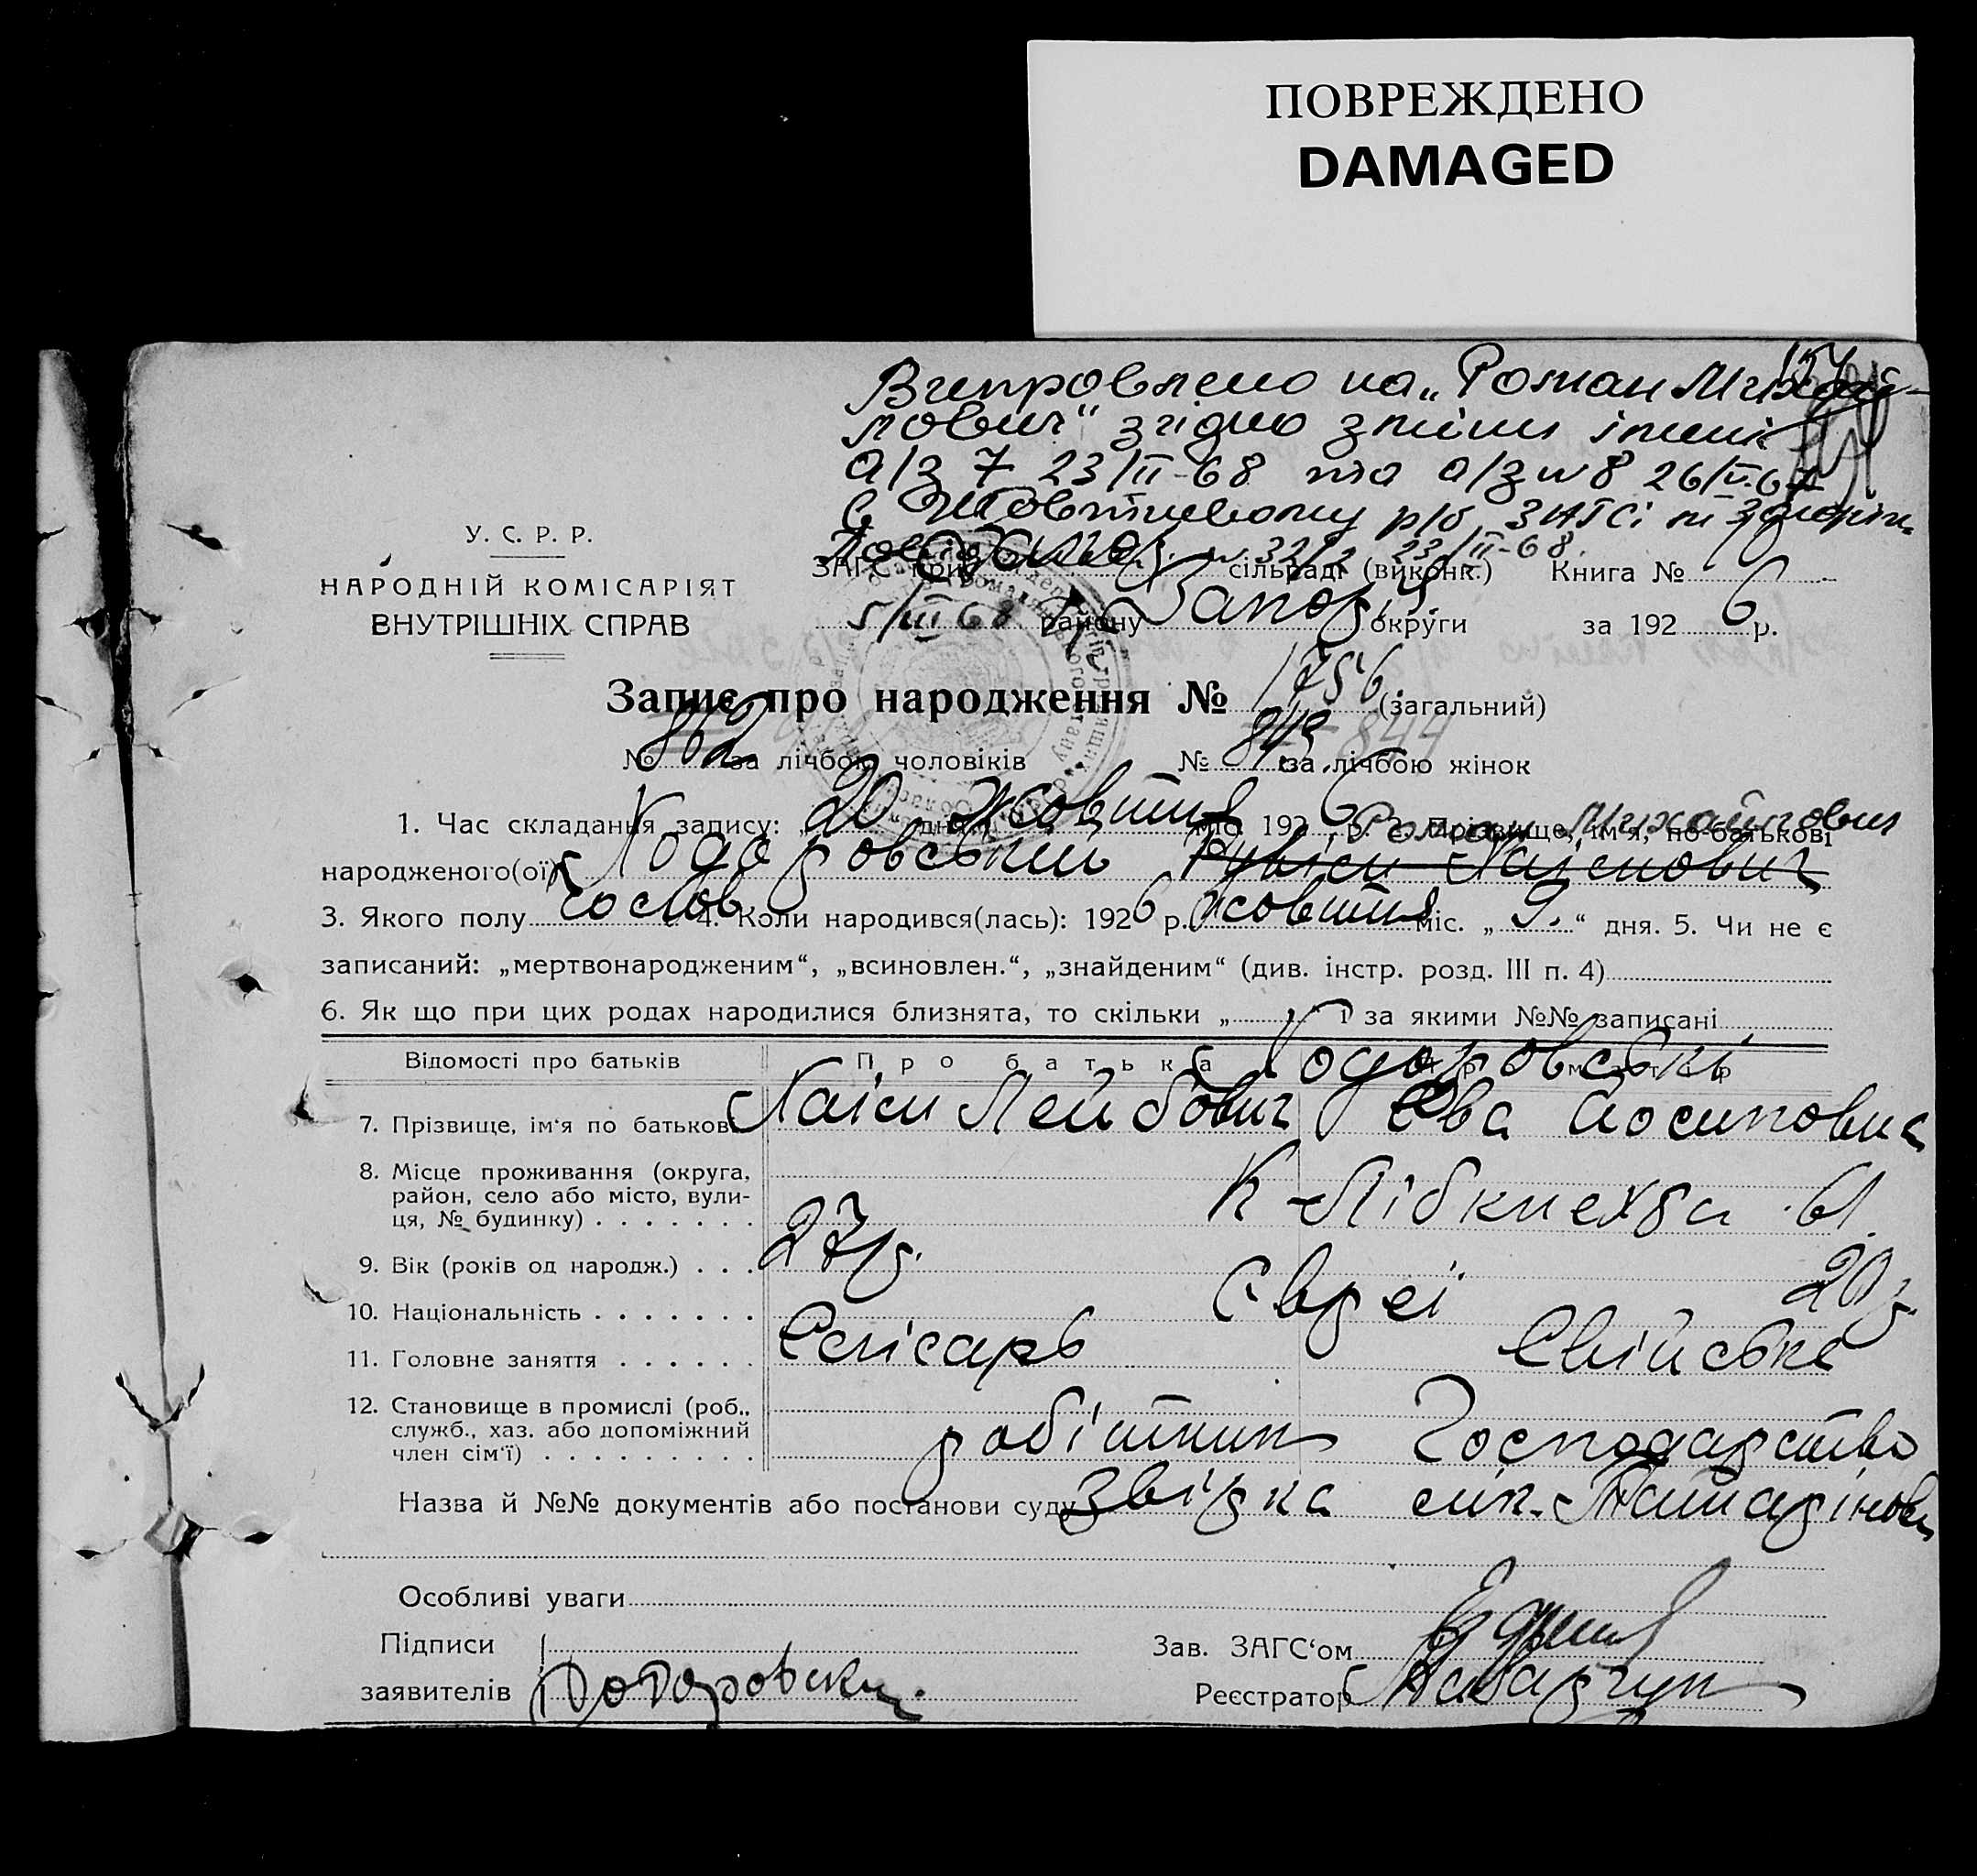 ПОВРЕЖДЕНО
DAMAGED
Виправлено на „Роман Михай-
лович“ згідно зміни імені
а/з 7 23/II-68 та а/з № 8 26/IV.67
в Жовтневому р/б ЗАГСі м Запоріж.
23/II-68
У. С. Р. Р.
НАРОДНІЙ КОМІСАРІЯТ
ВНУТРІШНІХ СПРАВ
ЗАГС при сільраді (виконк.) Книга №
5/III 68 району Запоріз. округи за 1926 р.
Запис про народження № 1756 (загальний)
№ 862 за лічбою чоловіків № за лічбою жінок 844
1. Час складання запису: „20 дня“ жовтня міс 1926 р. 2. Прізвище, ім'я, по-батькові Роман Михайлович
народженого(ої) Ходоровський Хаїмович
3. Якого полу чолов 4. Коли народився(лась): 1926 р. жовтня міс. „9.“ дня. 5. Чи не є
записаний: „мертвонародженим“, „всиновлен.“, „знайденим“ (див. інстр. розд. III п. 4)
6. Як що при цих родах народилися близнята, то скільки „ “ і за якими №№ записані
Відомості про батьків Про батька Про матір
Ходоровські
7. Прізвище, ім'я по батькові Хаїм Лейбович Єва Йосиповна
8. Місце проживання (округа,
район, село або місто, вули-
ця, № будинку) К-Лібкнехта 61.
9. Вік (років од народж.) 27 р. 20 р.
10. Національність Євреї
11. Головне заняття Слюсарь Свійське
12. Становище в промислі (роб.,
служб., хаз. або допоміжний
член сім'ї) робітник Господарство
Назва й №№ документів або постанови суду
Особливі уваги
Підписи Зав. ЗАГС'ом
заявителів Ходоровский. Реєстратор